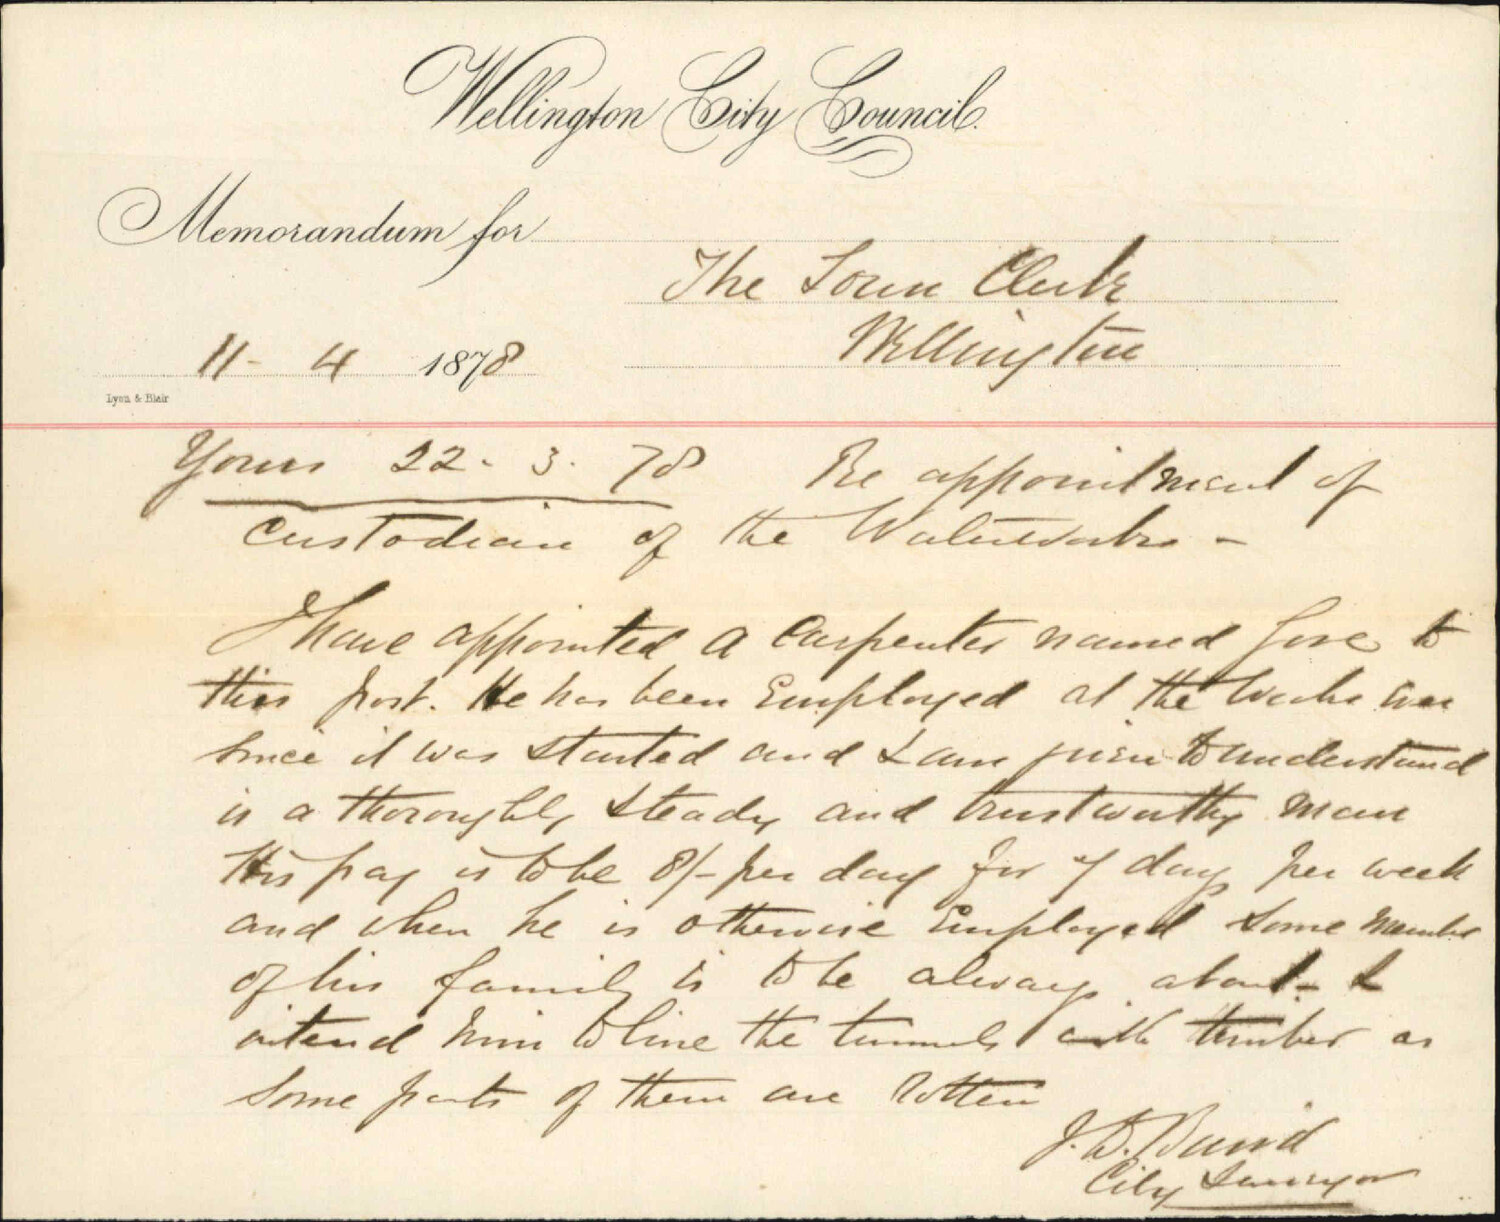 Wellington City Council.
Memorandum for
The Town Clerk
Wellington
11 - 4 1878
Lyon & Blair
Yours 22. 3. 78 Re appointment of
Custodian of the Waterworks -
I have appointed a Carpenter named Gore to
this post. He has been Employed at the Works Ever
since it was started and I am given to understand
is a thoroughly steady and trustworthy man
His pay is to be 8/- per day for 7 days per week
and when he is otherwise Employed some member
of his family is to be always about - I
intend him to line the tunnels with timber as
some parts of them are Rotten
J. D. Baird
City Surveyor